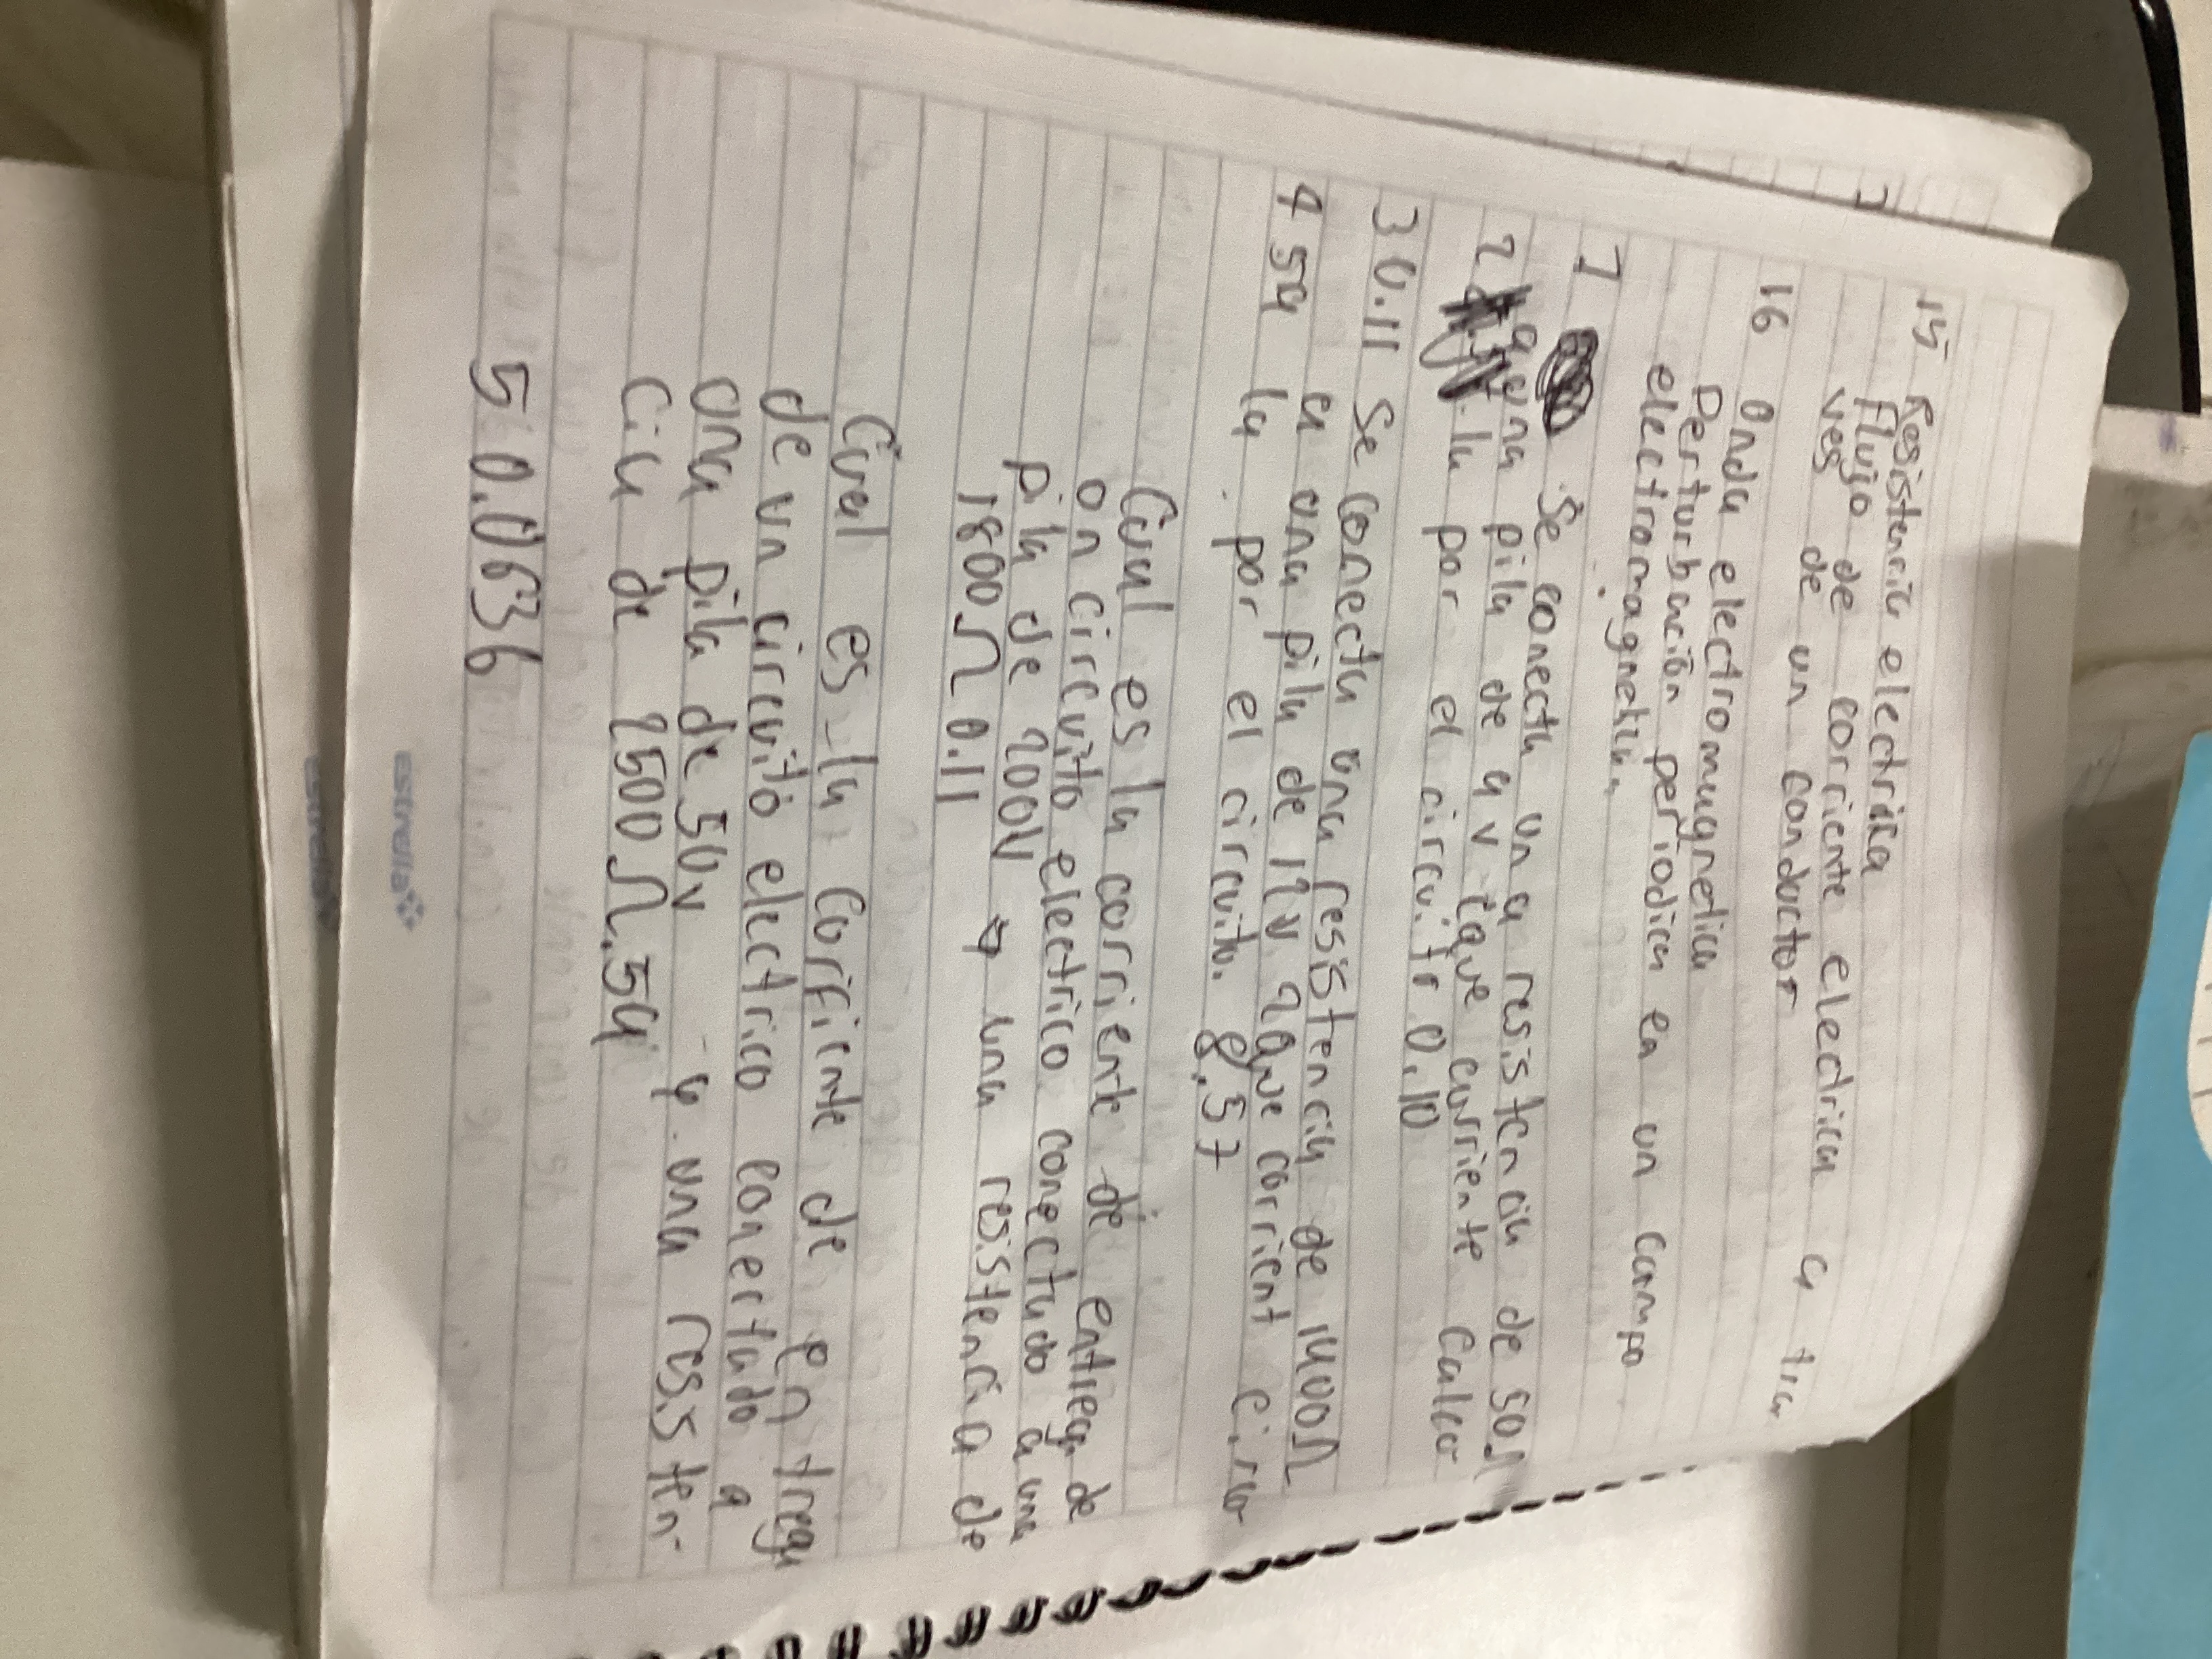 15 Resistencia electrica
Flujo de corriente electrica a tra
ves de un conductor
16 Onda electromagnetica
Perturbación periodica en un campo
electromagnetica.
1 Se conecta un a resistencia de 50Ω
2 a una pila de a v Eque corriente Calcu
la por el circuito 0.10
3 0.11 Se conecta una resistencia de 1400Ω
4 54 a una pila de 12v 2que corrient circu
la por el circuito. 8.57
Cual es la corriente de entrega de
on circuito electrico conectado a una
pila de 200v y una resistencia de
1800Ω 0.11
Cual es la corriente de entrega
de un circuito electrico conectado a
una pila de 50v y una resisten
cia de 2500Ω.54
5 0.0636
estrella